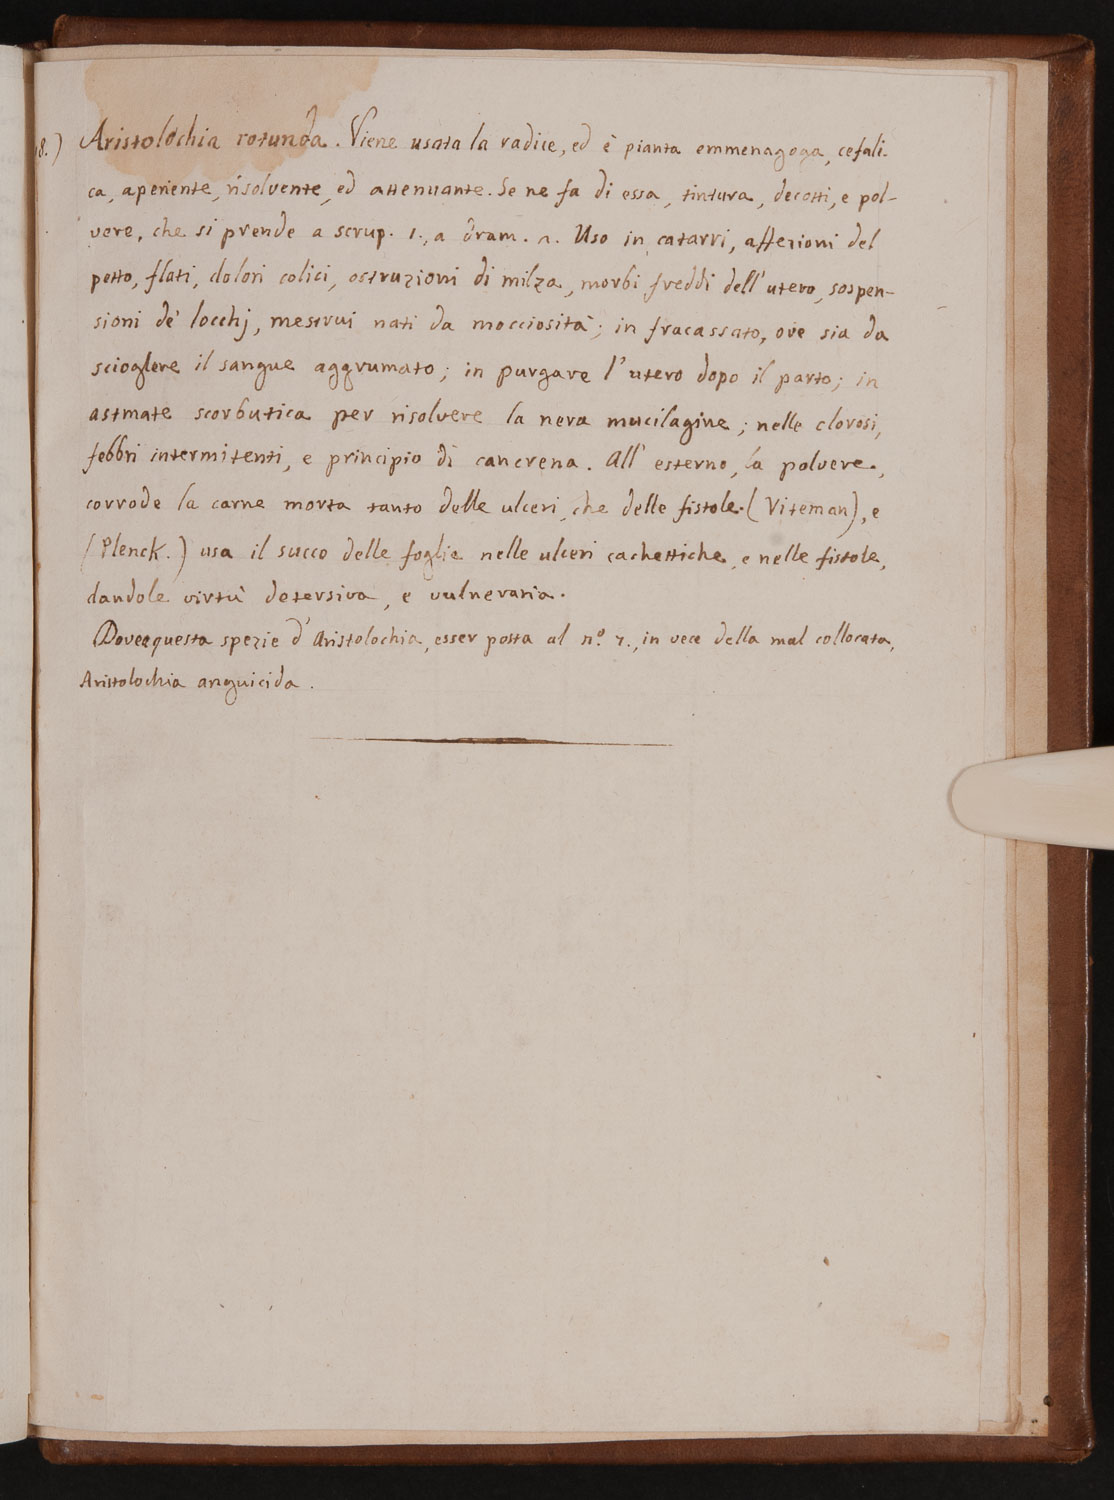 8.) Aristolochia rotunda. Viene usata la radice, ed è pianta emmenagoga, cefali-
ca, aperiente, risolvente, ed attenuante. Se ne fa di essa, tintura, decotti, e pol-
vere, che si prende a scrup. 1., a dram. 1. Uso in catarri, affezioni del
petto, flati, dolori colici, ostruzioni di milza, morbi freddi dell'utero, sospen-
sioni de' locchj, mestrui nati da mocciosità; in fracassato, ove sia da
scioglere il sangue aggrumato; in purgare l'utero dopo il parto; in
astmate scorbutica per risolvere la nera mucilagine; nelle clorosi,
febbri intermitenti, e principio di cancrena. All' esterno, la polvere,
corrode la carne morta tanto delle ulceri, che delle fistole. (Viteman), e
(Plenck.) usa il succo delle foglie nelle ulceri cachettiche, e nelle fistole,
dandole virtù detersiva, e vulneraria.
Dovea questa spezie d'Aristolochia, esser posta al n.º 7., in vece della mal collocata,
Aristolochia anguicida.